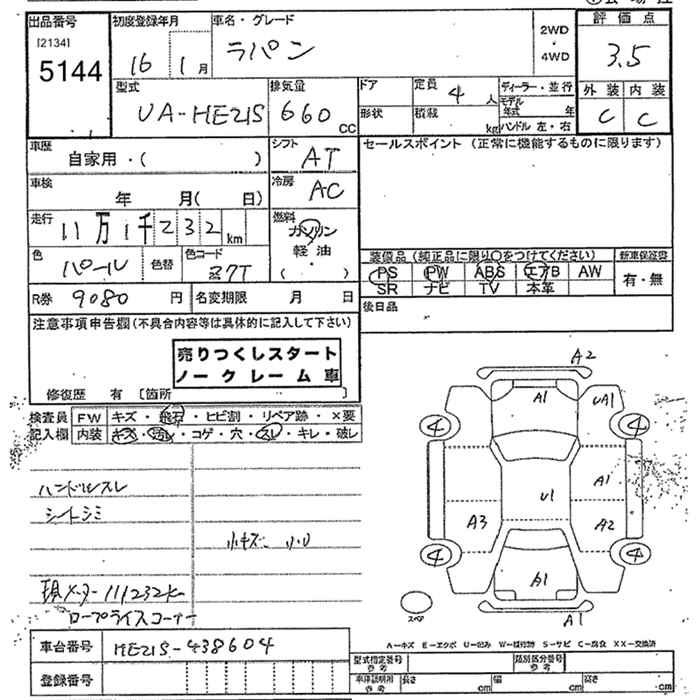 出品番号 初度登録年月 車名・グレード 2WD・4WD 評価点
[2134]
5144
16 1月 ラパン 3.5
型式 排気量 ドア 定員 4人 ディーラー・並行 外装 内装
UA-HE21S 660cc 形状 積載 kg モデル年式 年 C C
ハンドル 左・右
車歴 シフト セールスポイント (正常に機能するものに限ります)
自家用・( ) AT
車検 冷房
年 月( 日) AC
走行 11万1千232km 燃料 ガソリン
軽油
( )
色 パール 色替 色コード Z7T
装備品 (純正品に限り○をつけてください) 新車保証書
PS PW ABS エアB AW 有・無
SR ナビ TV 本革
R券 9080円 名変期限 月 日 後日品
注意事項申告欄(不具合内容等は具体的に記入して下さい)
売りつくしスタート
ノークレーム車
修復歴 有 [箇所 ]
検査員 FW キズ・飛石・ヒビ割・リペア跡・×要
記入欄 内装 キズ・汚レ・コゲ・穴・スレ・キレ・破レ
ハンドルスレ
シートシミ
小キズ 小U
現メーター111232km
ロープライスコーナー
A2
A1 UA1
4 4
A1
U1
A3 A2
4 4
A1
スペア A1
A-キズ E-エクボ U-凹み W-補修跡 S-サビ C-腐食 XX-交換済
車台番号 HE21S-438604
型式指定番号 参考 類別区分番号 参考
登録番号 車庫証明用 参考 長さ cm 幅 cm 高さ cm